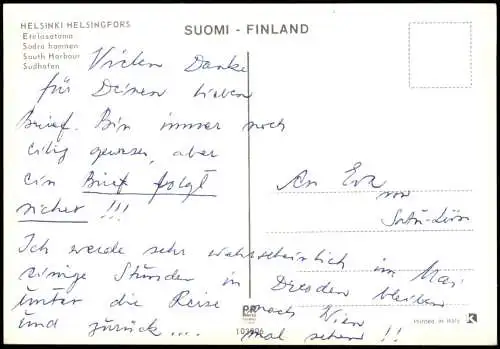 HELSINKI HELSINGFORS
Eteläsatama
Södra hamnen
South Harbour
Südhafen
SUOMI - FINLAND
Vielen Danke
für Deinen lieben
Brief. Bin immer noch
eilig gewesen, aber
ein Brief folgt
sicher !!!
An Eva
von
Ich werde sehr wahrscheinlich im Mai
einige Stunden in Dresden bleiben
unter die Reise nach Wien
und zurück.... mal sehen !!
103906
Printed in Italy
K